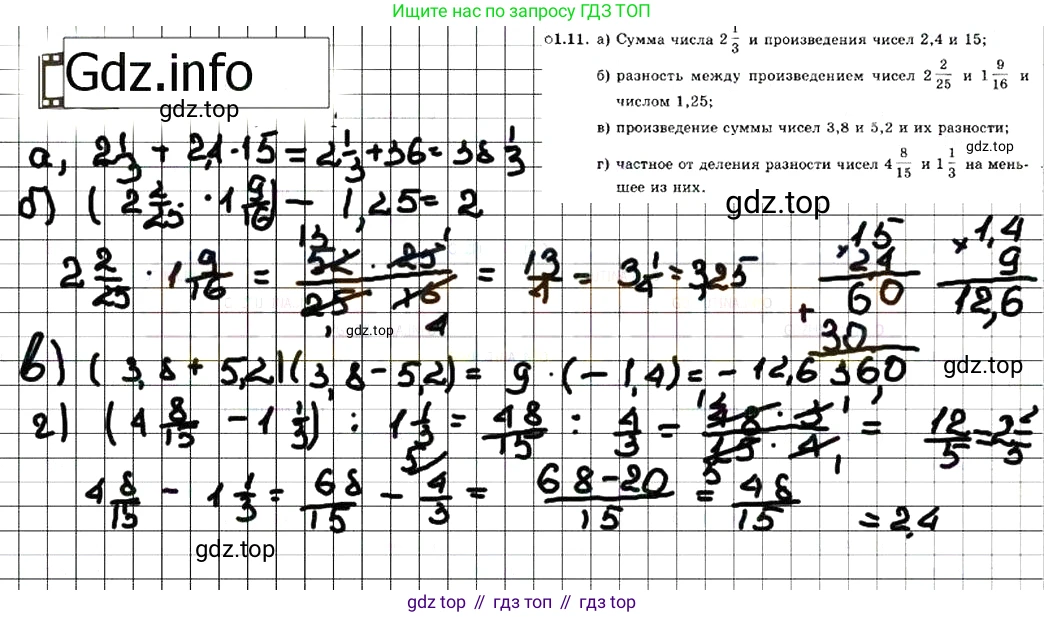 Ищите нас по запросу ГДЗ ТОП
Gdz.info
gdz.top
1.11. а) Сумма числа 2 1/3 и произведения чисел 2,4 и 15;
б) разность между произведением чисел 2 2/25 и 1 9/16 и
числом 1,25;
в) произведение суммы чисел 3,8 и 5,2 и их разности;
gdz.top
г) частное от деления разности чисел 4 8/15 и 1 1/3 на мень-
шее из них.
gdz.top
а, 2 1/3 + 2,4 · 15 = 2 1/3 + 36 = 38 1/3
б) (2 2/25 · 1 9/16) - 1,25 = 2
2 2/25 · 1 9/16 = 52 · 25 / 25 · 16 = 13/4 = 3 1/4 = 3,25
15 × 24
60
+ 30
360
1,4 × 9
12,6
gdz.top
gdz.top
в) (3,8 + 5,2)(3,8 - 5,2) = 9 · (- 1,4) = - 12,6
г) (4 8/15 - 1 1/3) : 1 1/3 = 48/15 : 4/3 = 48 · 3 / 15 · 4 = 12/5 = 2 2/5
4 8/15 - 1 1/3 = 68/15 - 4/3 = 68-20/15 = 48/15
= 2,4
gdz.top
gdz top // гдз топ // гдз top